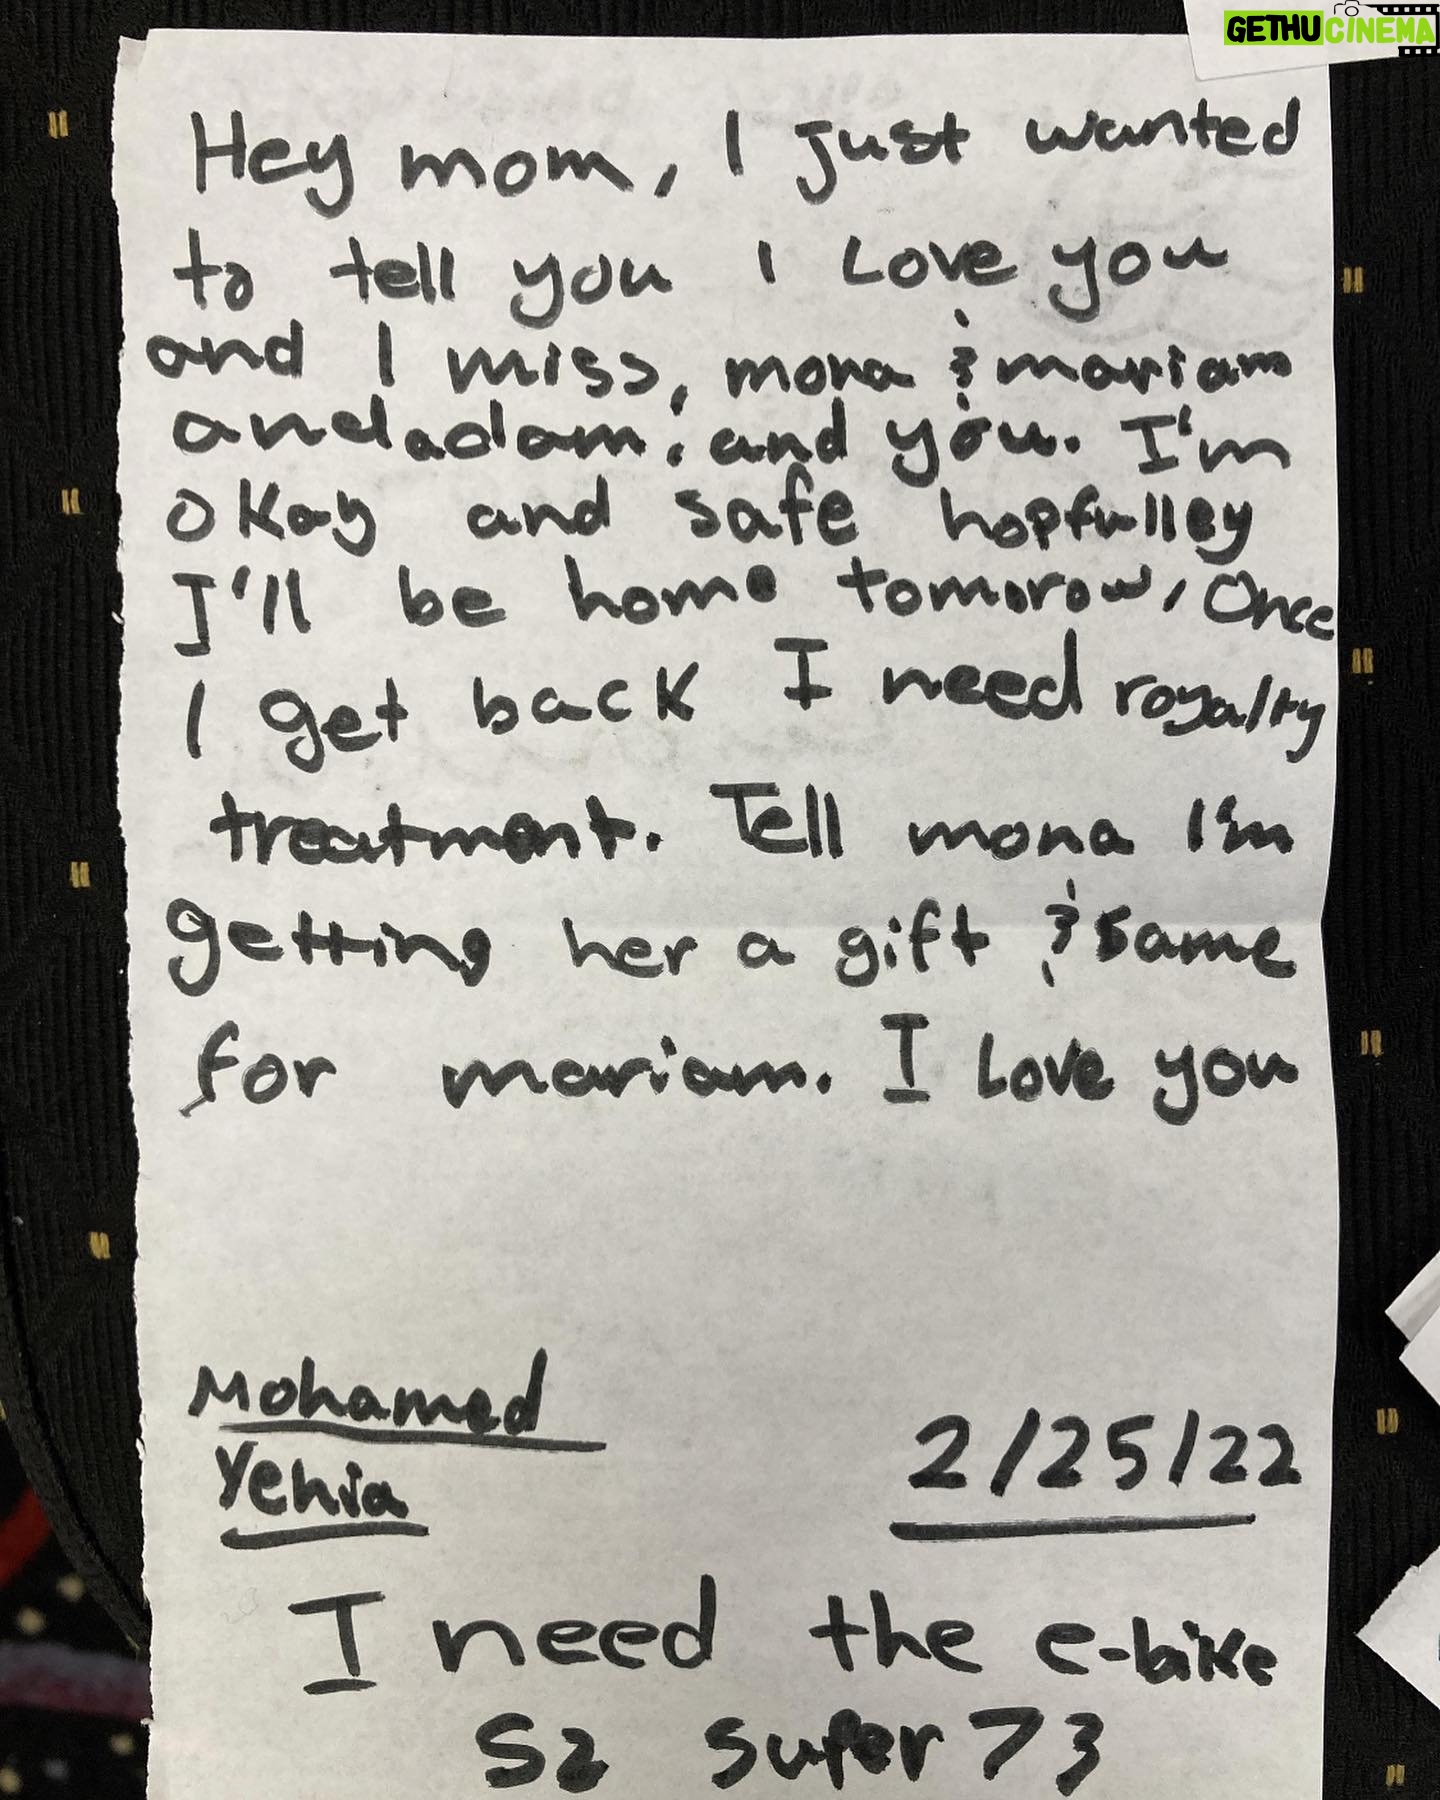 GETHUCINEMA
Hey mom, I just wanted
to tell you I Love you
and I miss, mona & mariam
and adam, and you. I'm
okay and safe hopfulley
I'll be home tomorow, Once
I get back I need royalty
treatment. Tell mona I'm
getting her a gift & same
for mariam. I Love you
Mohamed
Yehia
2/25/22
I need the e-bike
S2 sufer 73